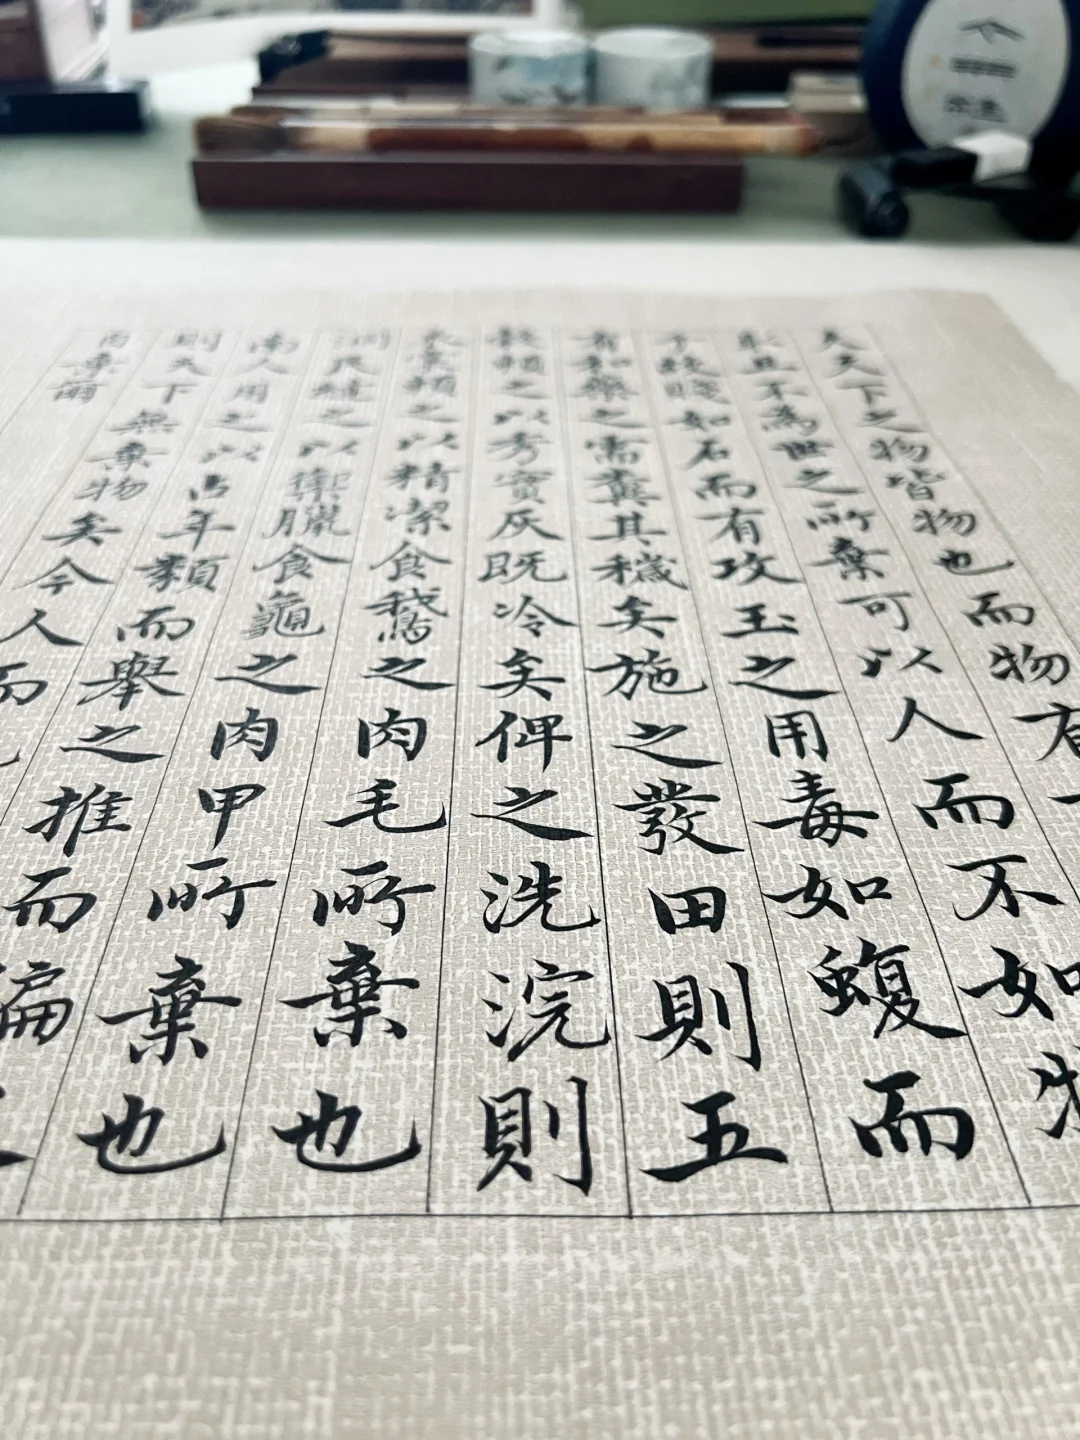 夫天下之物皆物也而物有
且不為世之所棄可以人而不如物
賤如石而有攻玉之用毒如蝮而
有和藥之需糞其穢矣施之發田則五
穀賴之以秀實灰既冷矣俾之洗浣則
衣裳賴之以精潔食鵝之肉毛所棄也
洞民縫之以禦臘食龜之肉甲所棄也
南人用之以占年類而舉之推而
則天下無棄物矣今人而